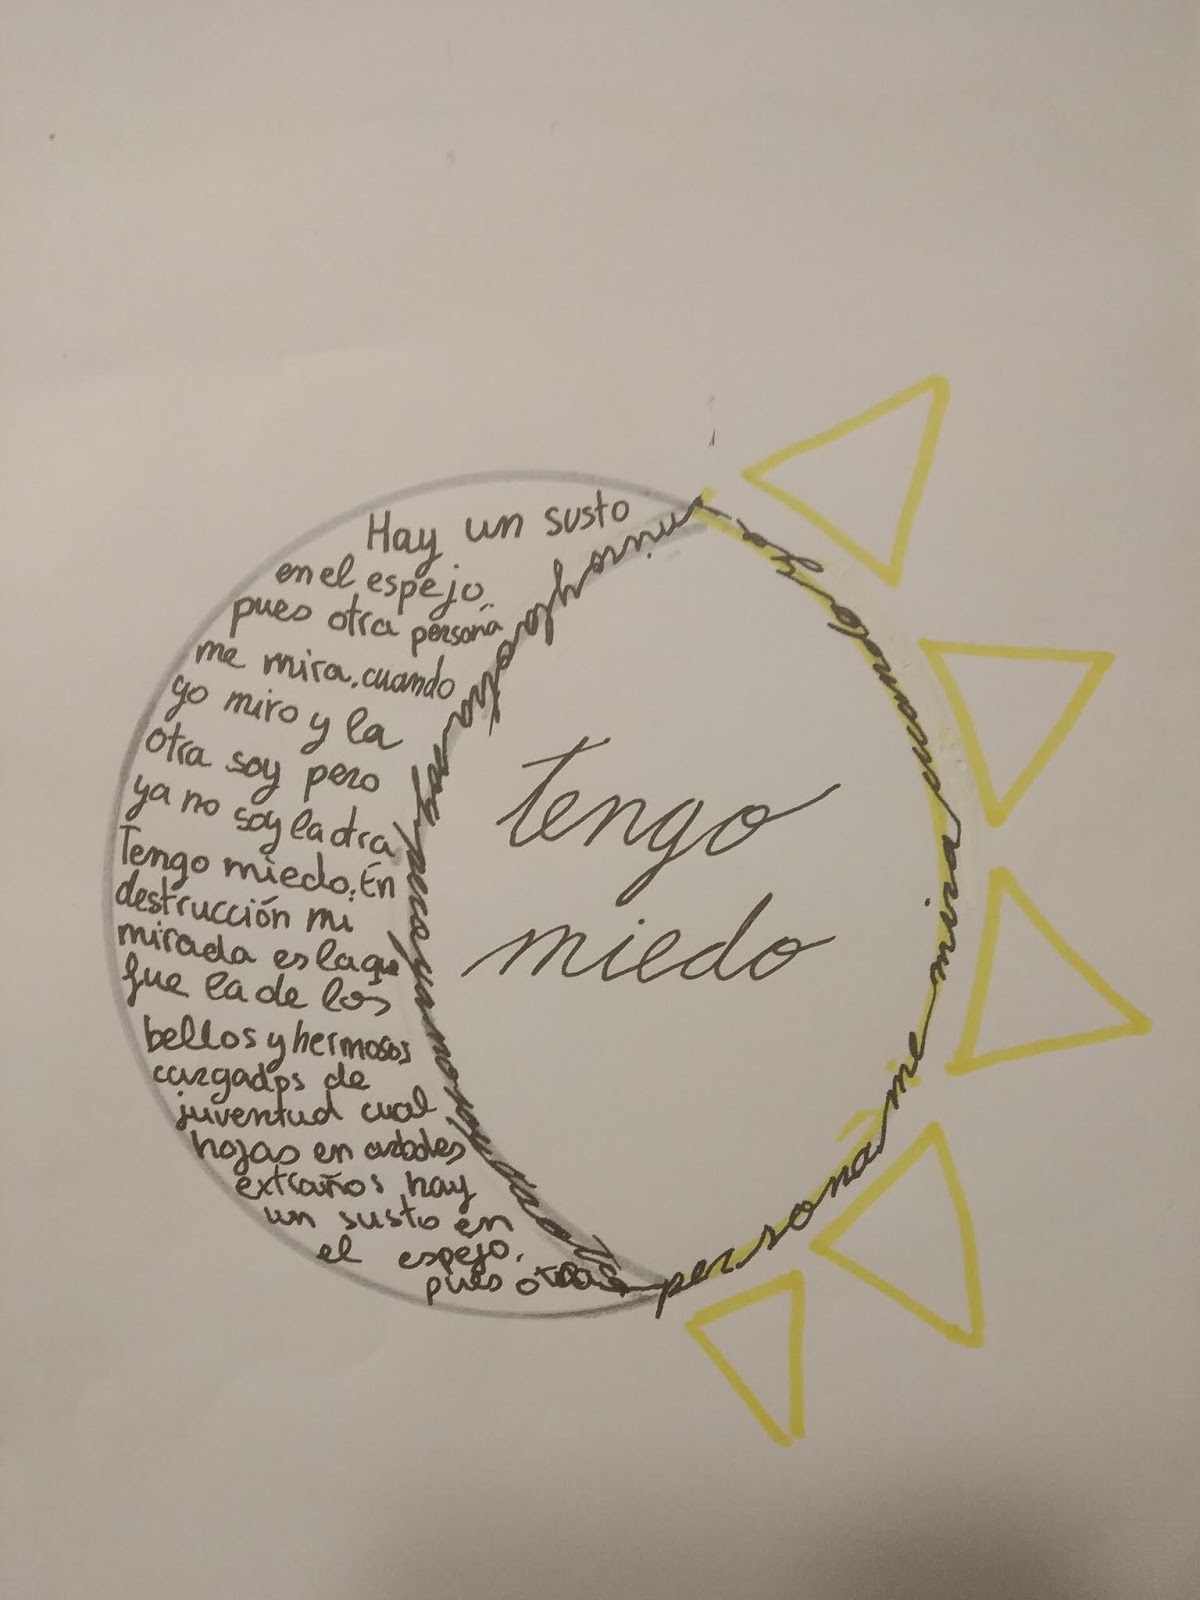 Hay un susto
en el espejo
pues otra persona
me mira. cuando
yo miro y la
otra soy pero
ya no soy la otra
Tengo miedo. En
destrucción mi
mirada es la que
fue la de los
bellos y hermosos
cargados de
juventud cual
hojas en arboles
extraños hay
un susto en
el espejo.
pues otra
persona me mira cuando yo
miro y la otra soy pero ya no soy la otra
tengo
miedo